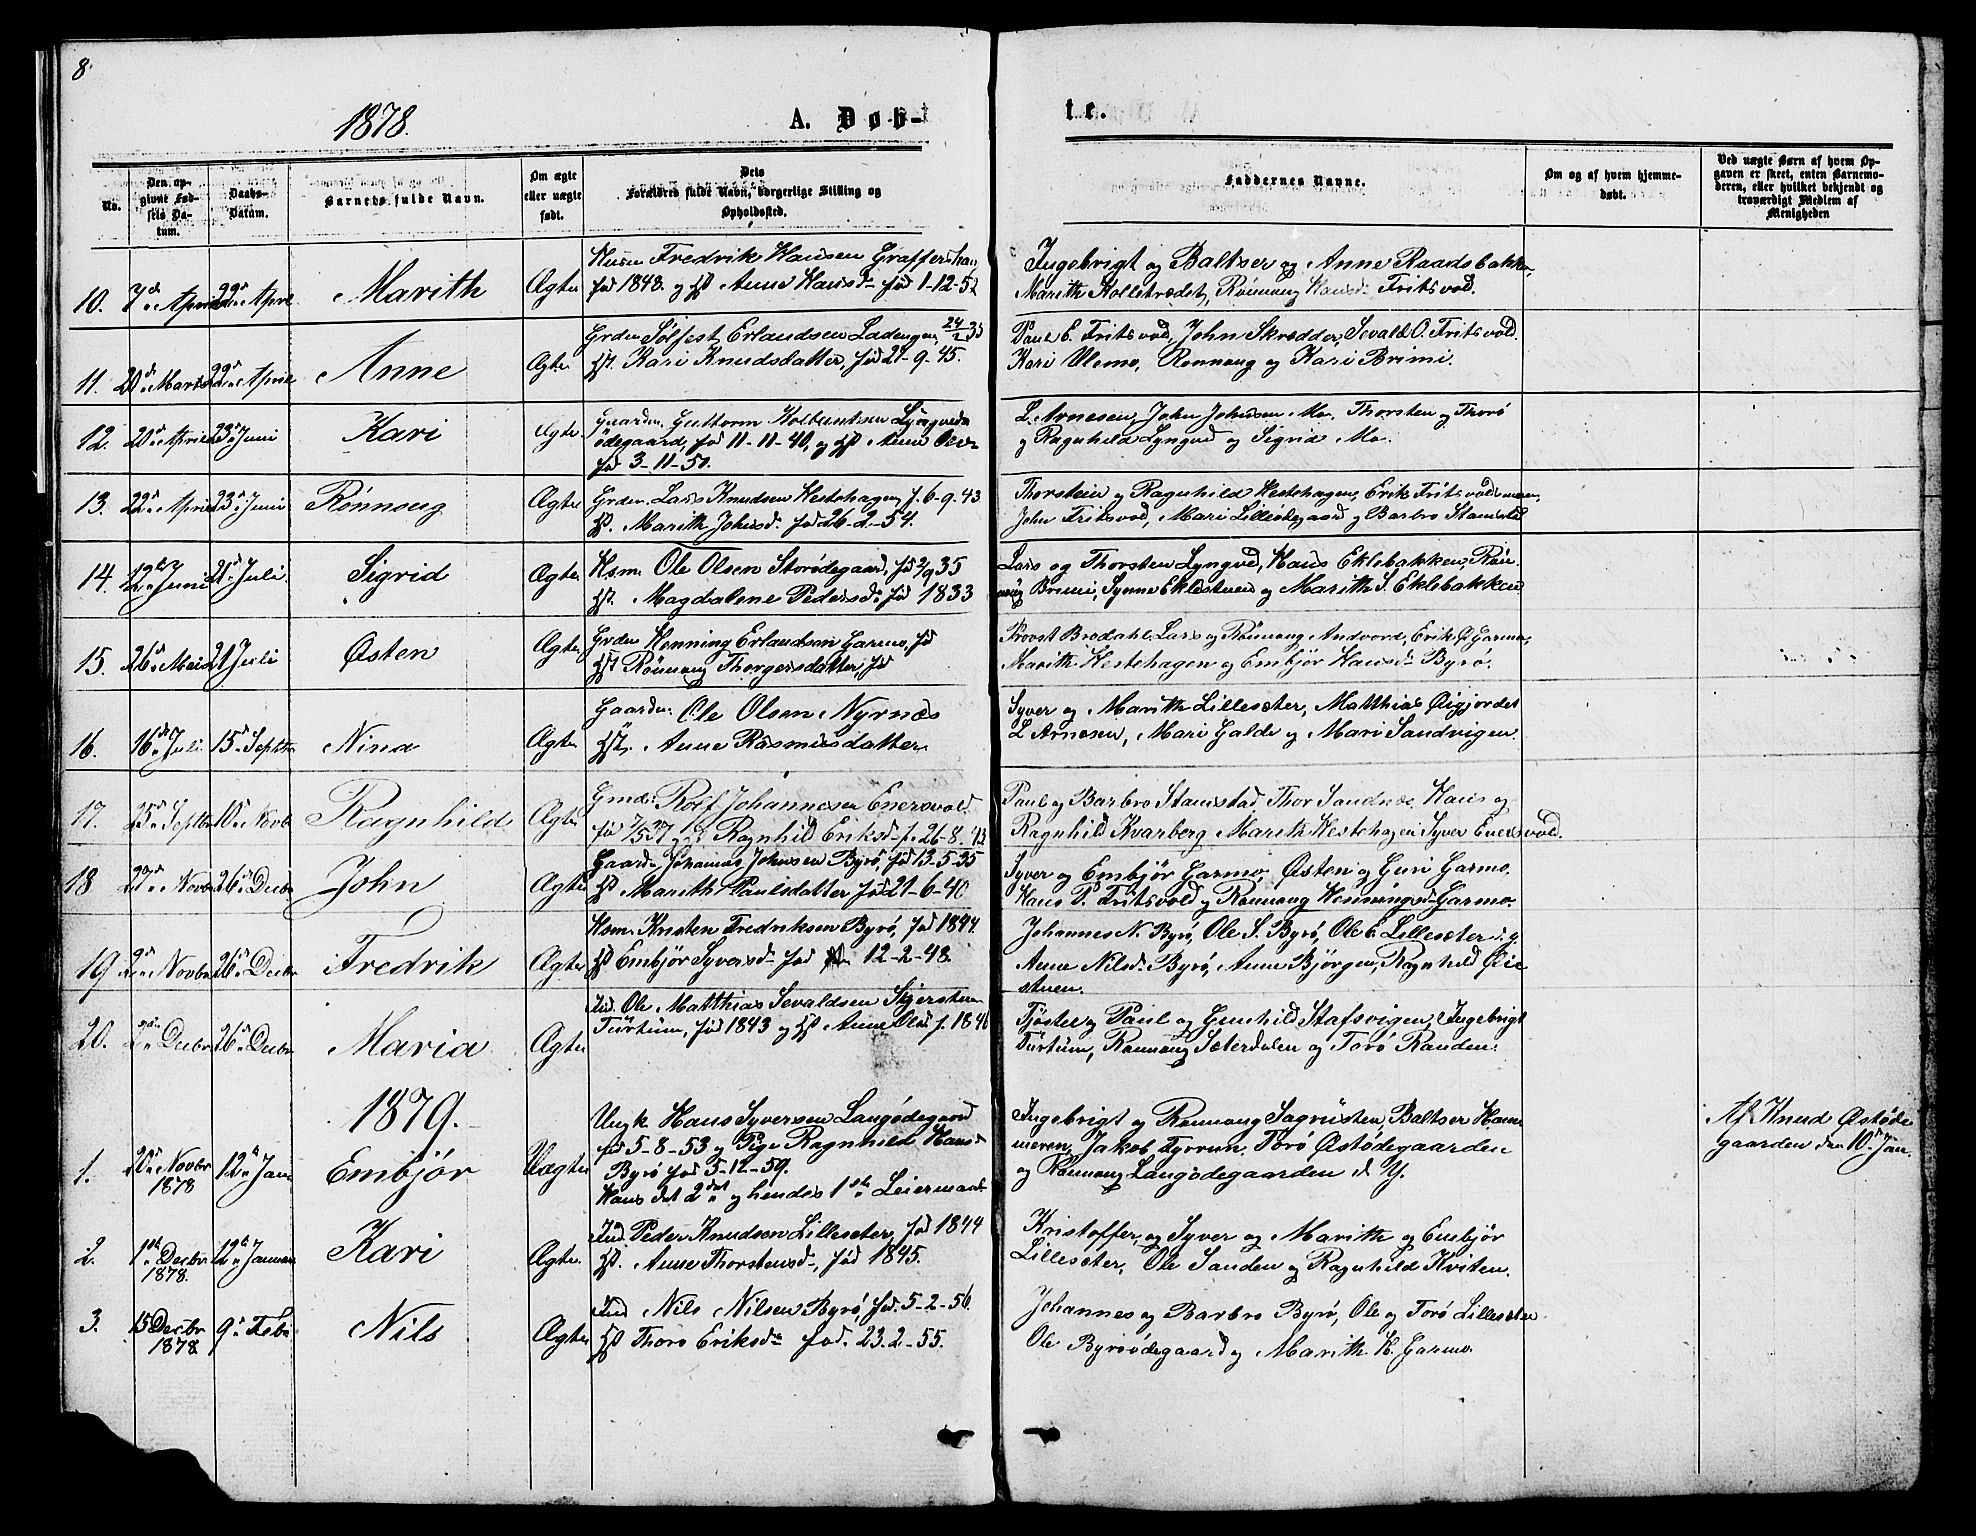 8.
1878.
A. Døb-
te.
No.
Den op-
givne Fød-
sels Da-
tum.
Daabs-
Datum.
Barnets fulde Navn.
Om ægte
eller uægte
født.
Dets
Forældres fulde Navn, borgerlige Stilling og
Opholdssted.
Faddernes Navne.
Om og af hvem hjemme-
døbt.
Ved uægte Børn af hvem Op-
gaven er skeet, enten Barnemo-
deren, eller hvilket bekjendt og
troværdigt Medlem af
Menigheden
10. 7de April 22 April Marith Ægte
Fredrik Hansen
fød 1848. og Hst Anne Hansd. fød 1-12-52
Ingebrigt og Baltser og Anne Raadsbakken,
Marith Kolletrædet, Rønnaug Hansd. Fritsvod.
11. 20 Marts 22 April Anne Ægte
Grdr Sølfest Erlandsen Ladengen 24/2 35
Hst. Kari Knudsdatter, fød 21-9-45.
Paul E. Fritsvod, John Skrædder, Sevald O. Fritsvold.
Kari Ulemo, Rønnaug og Kari Brimi.
12. 20 April 23 Juni Kari Ægte
Gaardm. Guttorm
ødegaard, fød 11-11-40, og Hst Anne
fød 3-11-50.
L. Arnesen, John Johnsen Mo. Thorsten og Thorø
og Ragnhild Lyngved og Sigrid Mo.
13. 22 April 23 Juni Rønnoug Ægte
Grdr. Lars Knudsen Hestehagen f. 6-9-43
Hst. Marith Johnsd. fød 26-2-54.
Thorstein og Ragnhild Hestehagen, Erik
John Fritsvod, Mari Lilleødegaard og Barbro Stamstad
14. 12 Juni 21 Juli Sigrid Ægte
Hsm. Ole Olsen Storødegaard, fød 2/9 35
Hst. Magdalene Pedersd. fød 1833
Lars og Thorsten Lyngved, Hans Eklebakken, Røn-
naug Brimi, Synne Eklestuen og Marith S. Eklebakken
15. 26 Mai 21 Juli Østen Ægte
Grdr Henning Erlandsen Garmo, fød
Hst Rønnaug Thorgersdatter, fød
Provst Brodahl. Lars og Rønnaug Andvord, Erik Garmo,
Marith Hestehagen og Embjør Hansd. Byrø.
16. 16de Juli 15 Septbr Nina Ægte
Gaardm. Ole Olsen Nyrnæs
Hst. Anne Rasmusdatter
Syver og Marith Lillesæter, Matthias Øigjordet
L Arnesen, Mari Galde og Mari Sandvigen.
17. 25 Septbr 10 Novbr Ragnhild Ægte
Gmd. Rolf Johannesen Enersvold
Ragnhild Eriksd. f. 26-8-43
Paul og Barbro Stamstad, Thor Sandnæs, Hans og
Ragnhild Kvarberg Marith Hestehagen Syver Enersvold.
18 Novbr 26 Decbr John Ægte
Gaardm Johannes Johnsen Byrø, fød 13-5-35
Hst Marith Paulsdatter fød 21-6-40
Syver og Embjør Garmo, Østen og Guri Garmo.
Hans P. Fritsvold og Rønnaug Henningsd Garmo.
19 Novbr 26 Decbr Fredrik Ægte
Hsm. Kristen Fredriksen Byrø, fød 1844.
Hst Embjør Syversd. fød 12-2-48.
Johannes N. Byrø, Ole S. Byrø, Ole E. Lillesæter
Anne Nilsd. Byrø, Anne Bjørgen, Ragnhild
stuen.
20. 2 Decbr 26 Decbr Maria Ægte
Ind. Ole Matthias Sevaldsen
fød 1843 og Hst Anne Olsd f. 1846
Tjøstel og Paul og Gunhild Stafsvigen, Ingebrigt
Rønnaug Sæterdalen og Torø Randen.
1879.
1. Novbr 1878 12 Jan Embjør Uægte
Ungk Hans Syversen Langødegaard
fød 5-8-53 og Pige Ragnhild Hansd
Byrø fød 5-12-59.
Hans det 2det og hendes 1ste Leiermaal
Ingebrigt og Rønnaug Sagrusten, Baltser Ham-
meren, Jakob Torø Østødegaarden
og Rønnaug Langødegaarden d. Y.
Af Knud Østøde-
gaarden den 10 Jan.
2. 1ste Decbr 1878. 12 Januar Kari Ægte.
Ind. Peder Knudsen Lillesæter, fød 1844
Hst. Anne Thorstensd., fød 1845.
Kristoffer, og Syver og Marith og Embjør
Lillesæter, Ole Sanden og Ragnhild Kviten.
3. 15 Decbr 1878. 9 Febr Nils Ægte
Ind Nils Nilsen Byrø, fød. 5-2-56.
Hst Thorø Eriksd. fød. 23-2-55.
Johannes og Barbro Byrø, Ole og Torø Lillesæter
Ole Byrøødegaard og Marith H. Garmo.